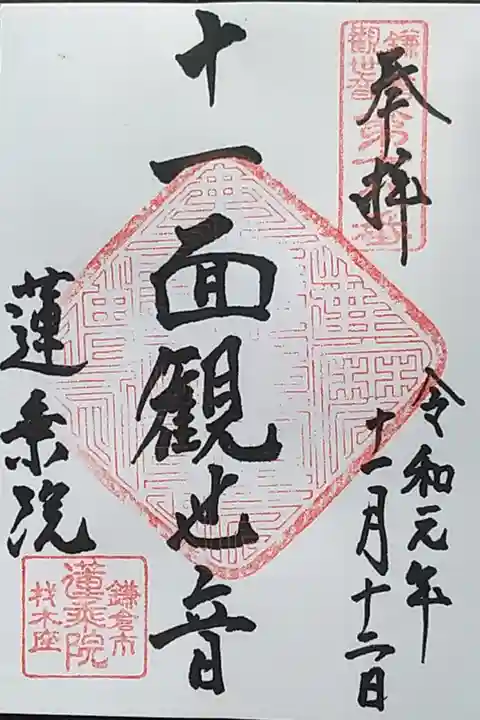 奉拝
令和元年
十一月十二日
十一面観世音
蓮乗院
鎌倉
観世音
鎌倉市
蓮乗院
材木座